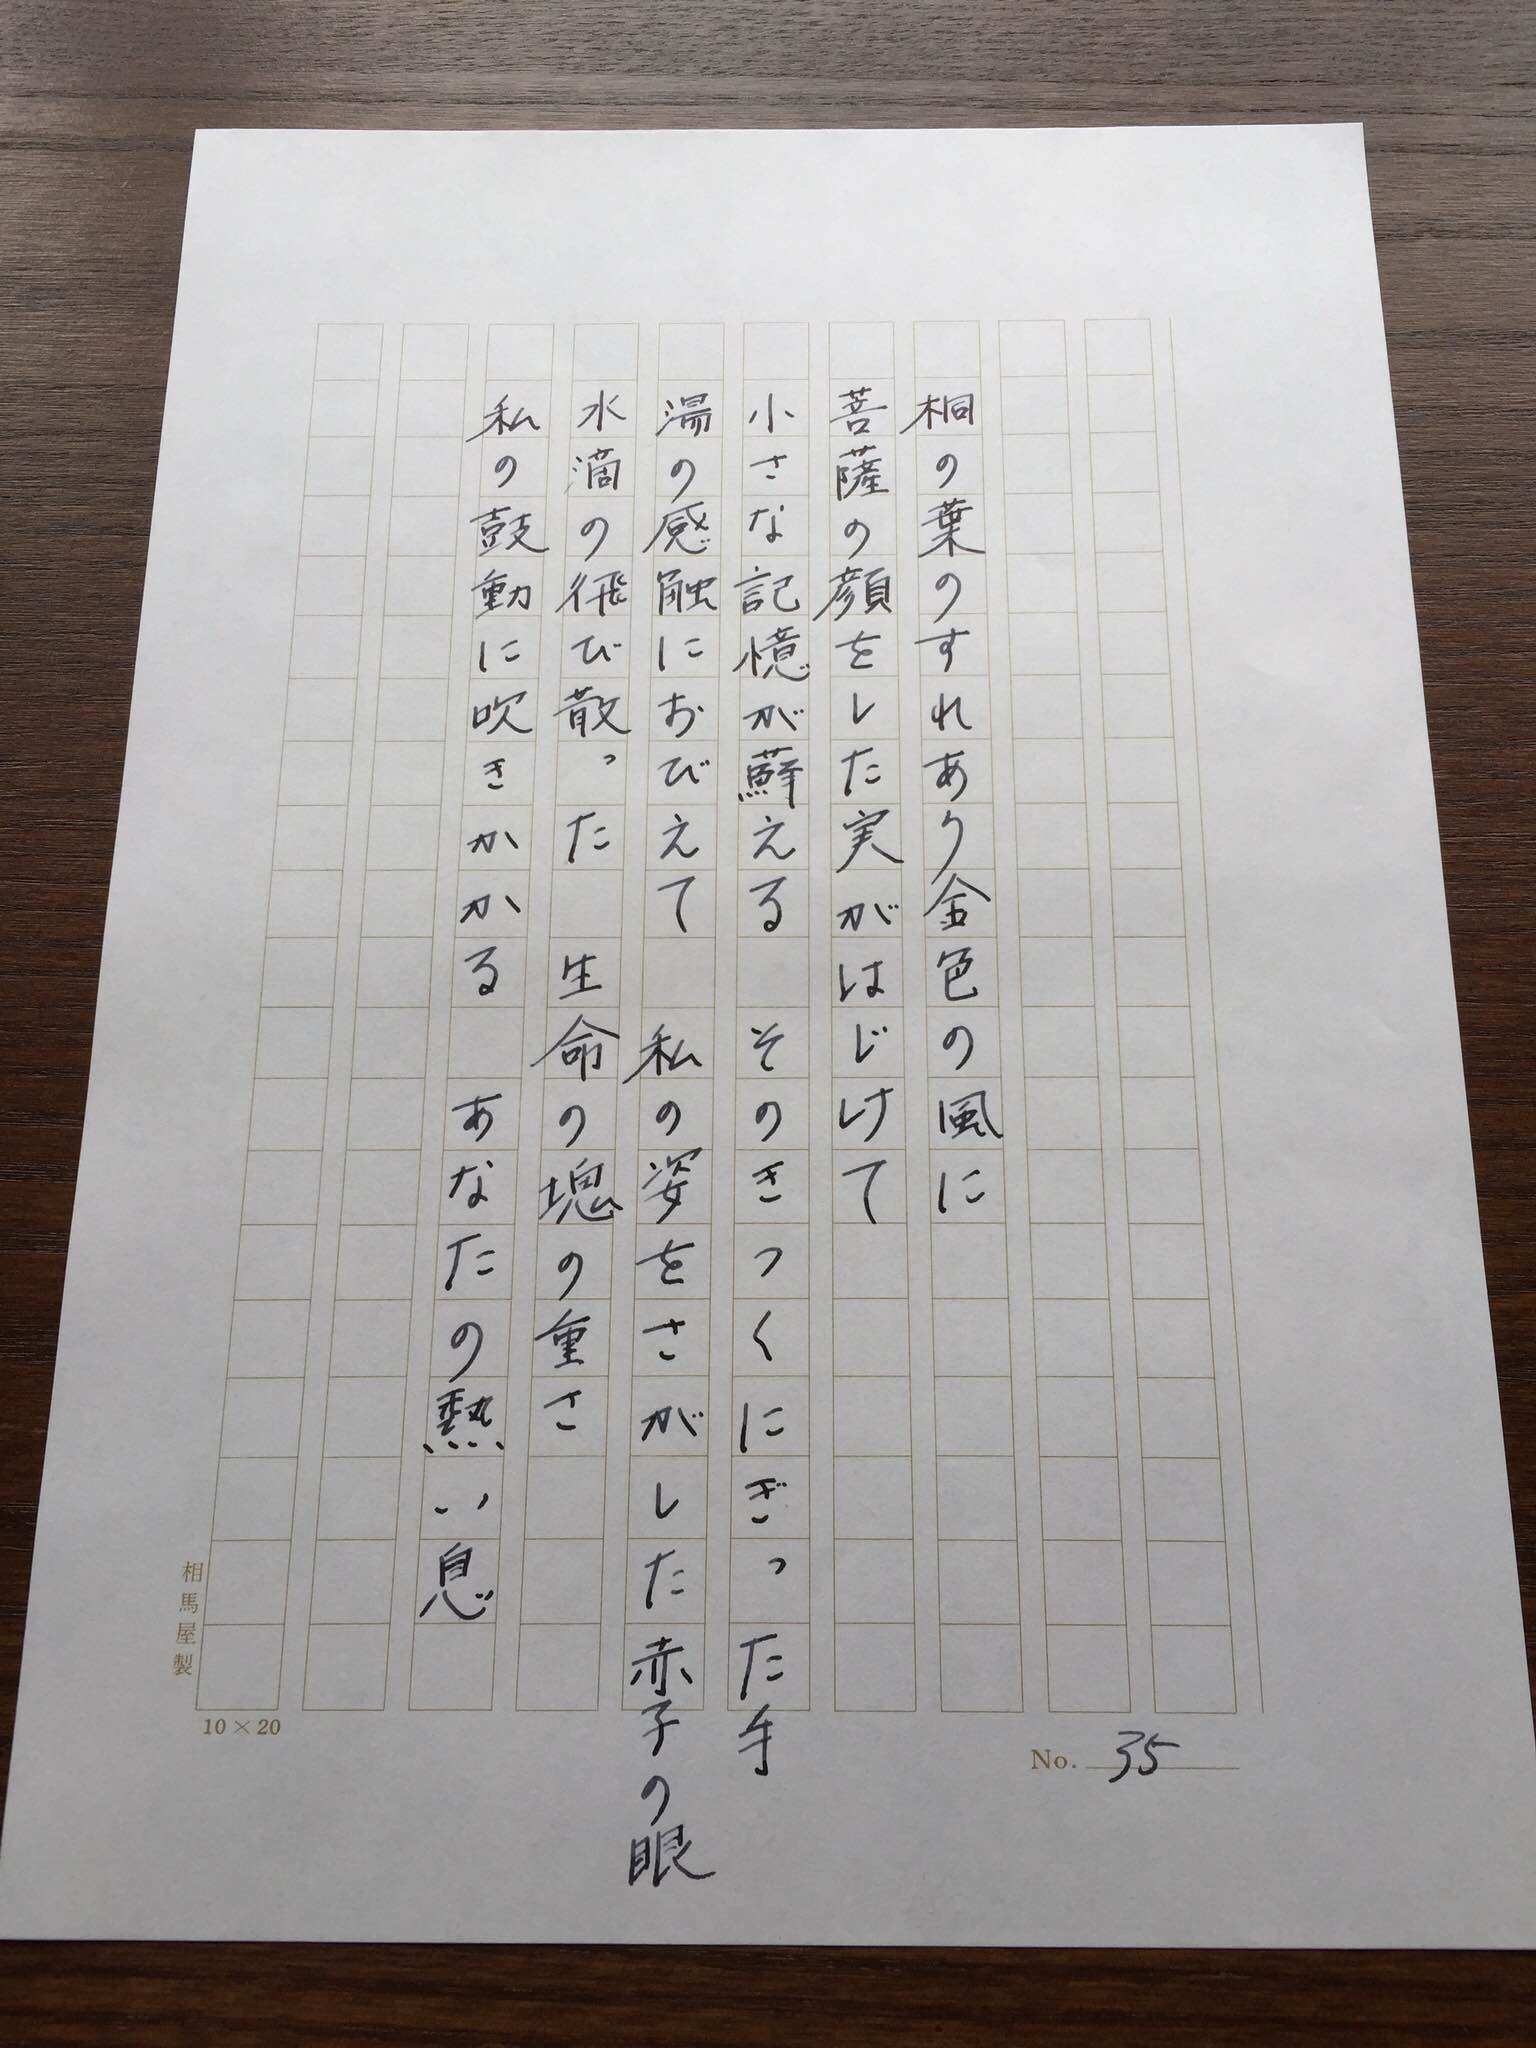 桐の葉のすれあり金色の風に
菩薩の顔をした実がはじけて
小さな記憶が蘇える　そのきつくにぎった手
湯の感触におびえて　私の姿をさがした赤子の眼
水滴の飛び散った　生命の塊の重さ
私の鼓動に吹きかかる　あなたの熱い息
No. 35
相馬屋製
10×20